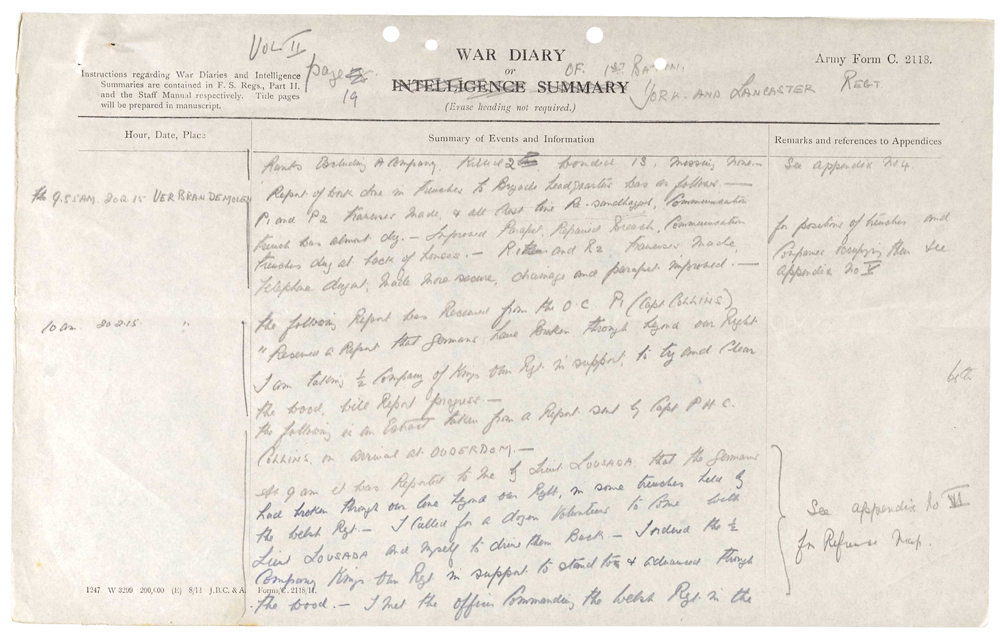 VOL II
page 19
WAR DIARY
or
INTELLIGENCE SUMMARY
(Erase heading not required.)
OF 1ST BATTN.
YORK AND LANCASTER REGT
Army Form C. 2118.
Instructions regarding War Diaries and Intelligence
Summaries are contained in F. S. Regs., Part II.
and the Staff Manual respectively. Title pages
will be prepared in manuscript.
Hour, Date, Place
Summary of Events and Information
Remarks and references to Appendices
Ranks Excluding A Company. Killed 2 Wounded 13, Missing None.
See appendix No 4.
9.55 AM. 20.2.15 VERBRANDEMOLEN
Report of work done in trenches to Brigade headquarters was as follows —
P1 and P2 Traverses Made, & all Port line Re-sandbagged, Communication
trench was almost dug. — Improved Parapet, Repaired Breach, Communication
trenches dug at back of houses. — R1 and R2, Traverses Made,
telephone dugout, Made More secure, drainage and parapet improved. —
for positions of trenches and
Companies occupying them see
appendix No V
10 am. 20.2.15 "
the following Report was Received from the O.C P1 (Capt COLLINS)
"Received a Report that Germans have broken through beyond our Right
I am taking ½ Company of Kings Own Regt in support, to try and Clear
the wood, will Report progress. —
the following is an Extract taken from a Report sent by Capt P.H.C.
COLLINS, on arrival at OUDERDOM. —
At 9 am it was Reported to Me by Lieut LOUSADA that the Germans
had broken through our line beyond our Right, in some trenches held by
the Welsh Regt. — I Called for a dozen Volunteers to Come with
Lieut LOUSADA and Myself to drive them Back. — I ordered the ½
Company Kings Own Regt in support to stand to & advanced through
the wood. — I Met the officer Commanding the Welsh Regt. in the
See appendix No VI
for Reference Map.
1247 W 3299 200,000 (E) 8/14 J.B.C. & A. Forms/C. 2118/11.